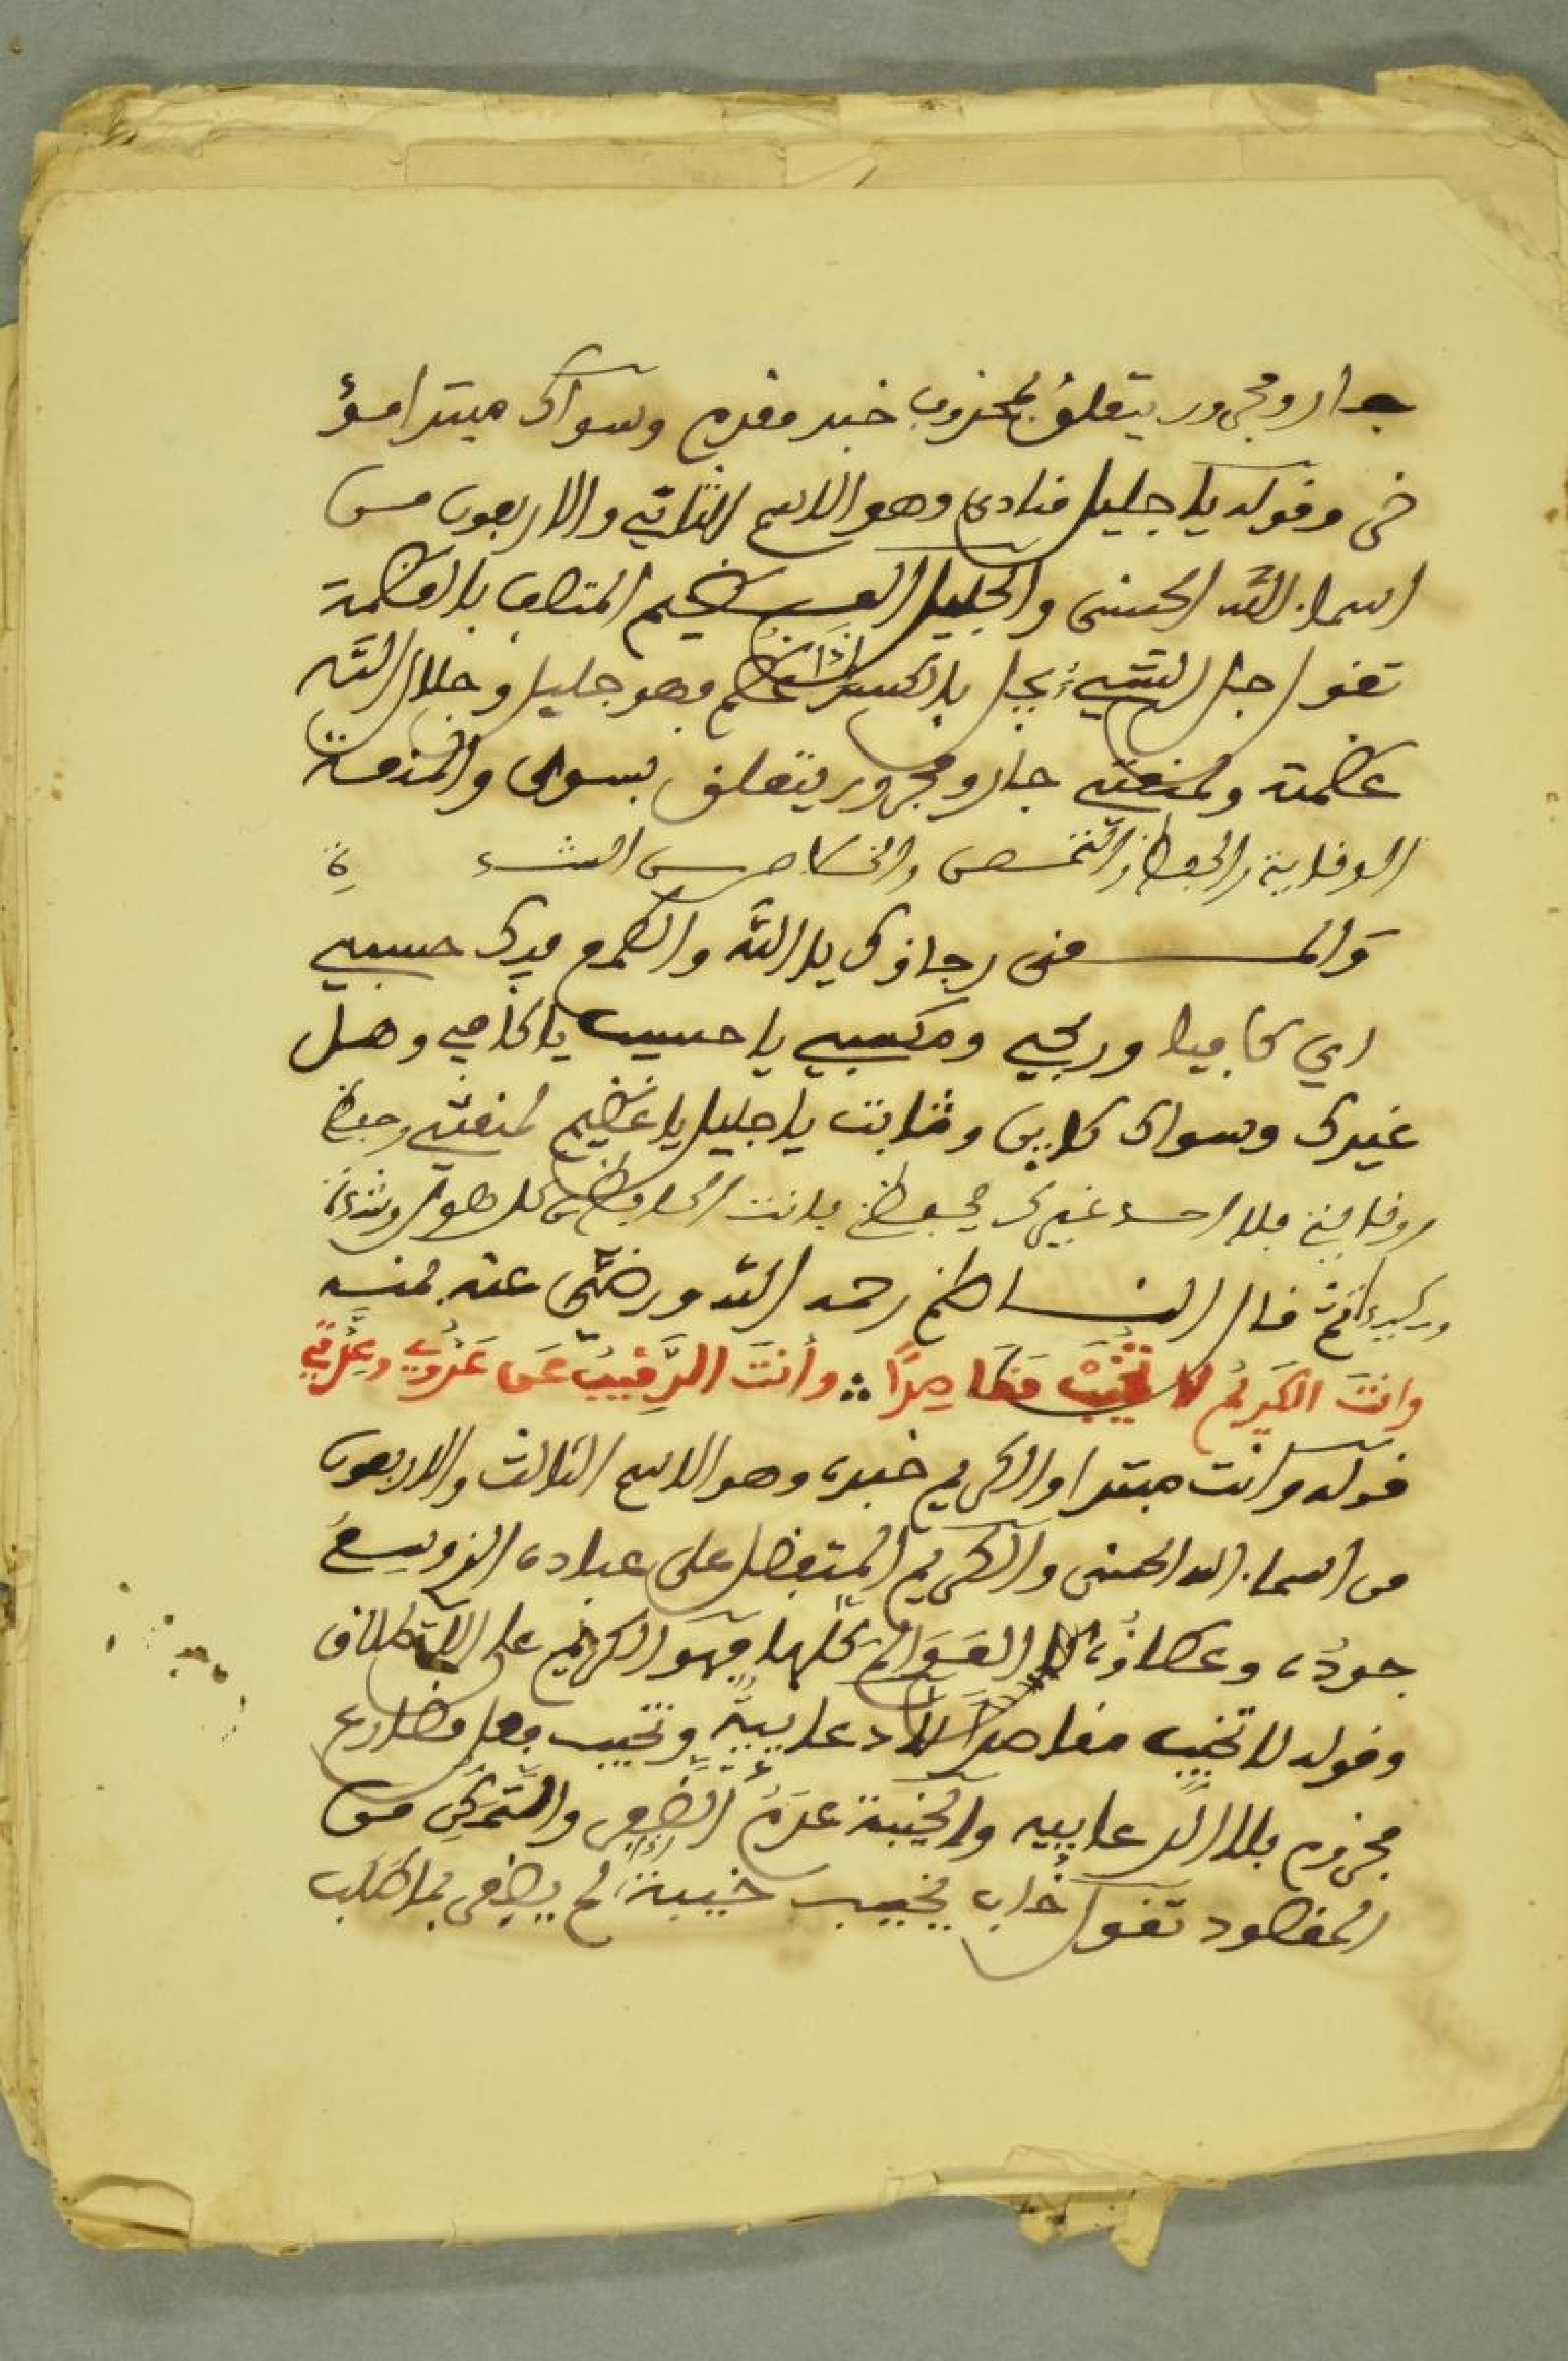 جار ومجرور يتعلق بمحذوب خبر مقدم وسواك مبتدا مؤ
خر وقوله يا جليل منادى وهو الاسم الثاني والاربعون من
اسماء الله الحسنى والجليل العظيم المتصف بالعظمة
تقول جل الشيء يجل بالكسر اذا عظم فهو جليل وجلال الله
عظمته ولمنعتي جار ومجرور يتعلق بسوى والمنعة
الوقاية والحفظ والتحصن من الشيء
والمعنى رجاؤك يا الله والطمع فيك حسبي
اي كافيا وربحي ومكسبي يا حسيب يا كافي وهل
غيرك وسواك كاين وثابت يا جليل يا عظيم لمنعتي وحفظ
ووقايتي فلا احد غيرك يحفظني فانت الحافظ من كل هول وشدة
ثم قال الناظم رحمه الله ورضي عنه بمنه
وانت الكريم لا تخيب مقاصدا ∴ وأنت الرقيب عن عدوي وعدتي
قوله وانت مبتدا والكريم خبره وهو الاسم الثالث والاربعون
من اسماء الله الحسنى والكريم المتفضل على عباده الذي وسع
جوده وعطاؤه العوالم كلها فهو الكريم على الاطلاق
وقوله لا تخيب مقاصدا لا دعايية وتخيب فعل مضارع
مجزوم بلا الدعاييه والخيبة عدم الظفر والتمكن من
المقصود تقول خاب يخيب خيبة اذا لم يظفر بما طلب